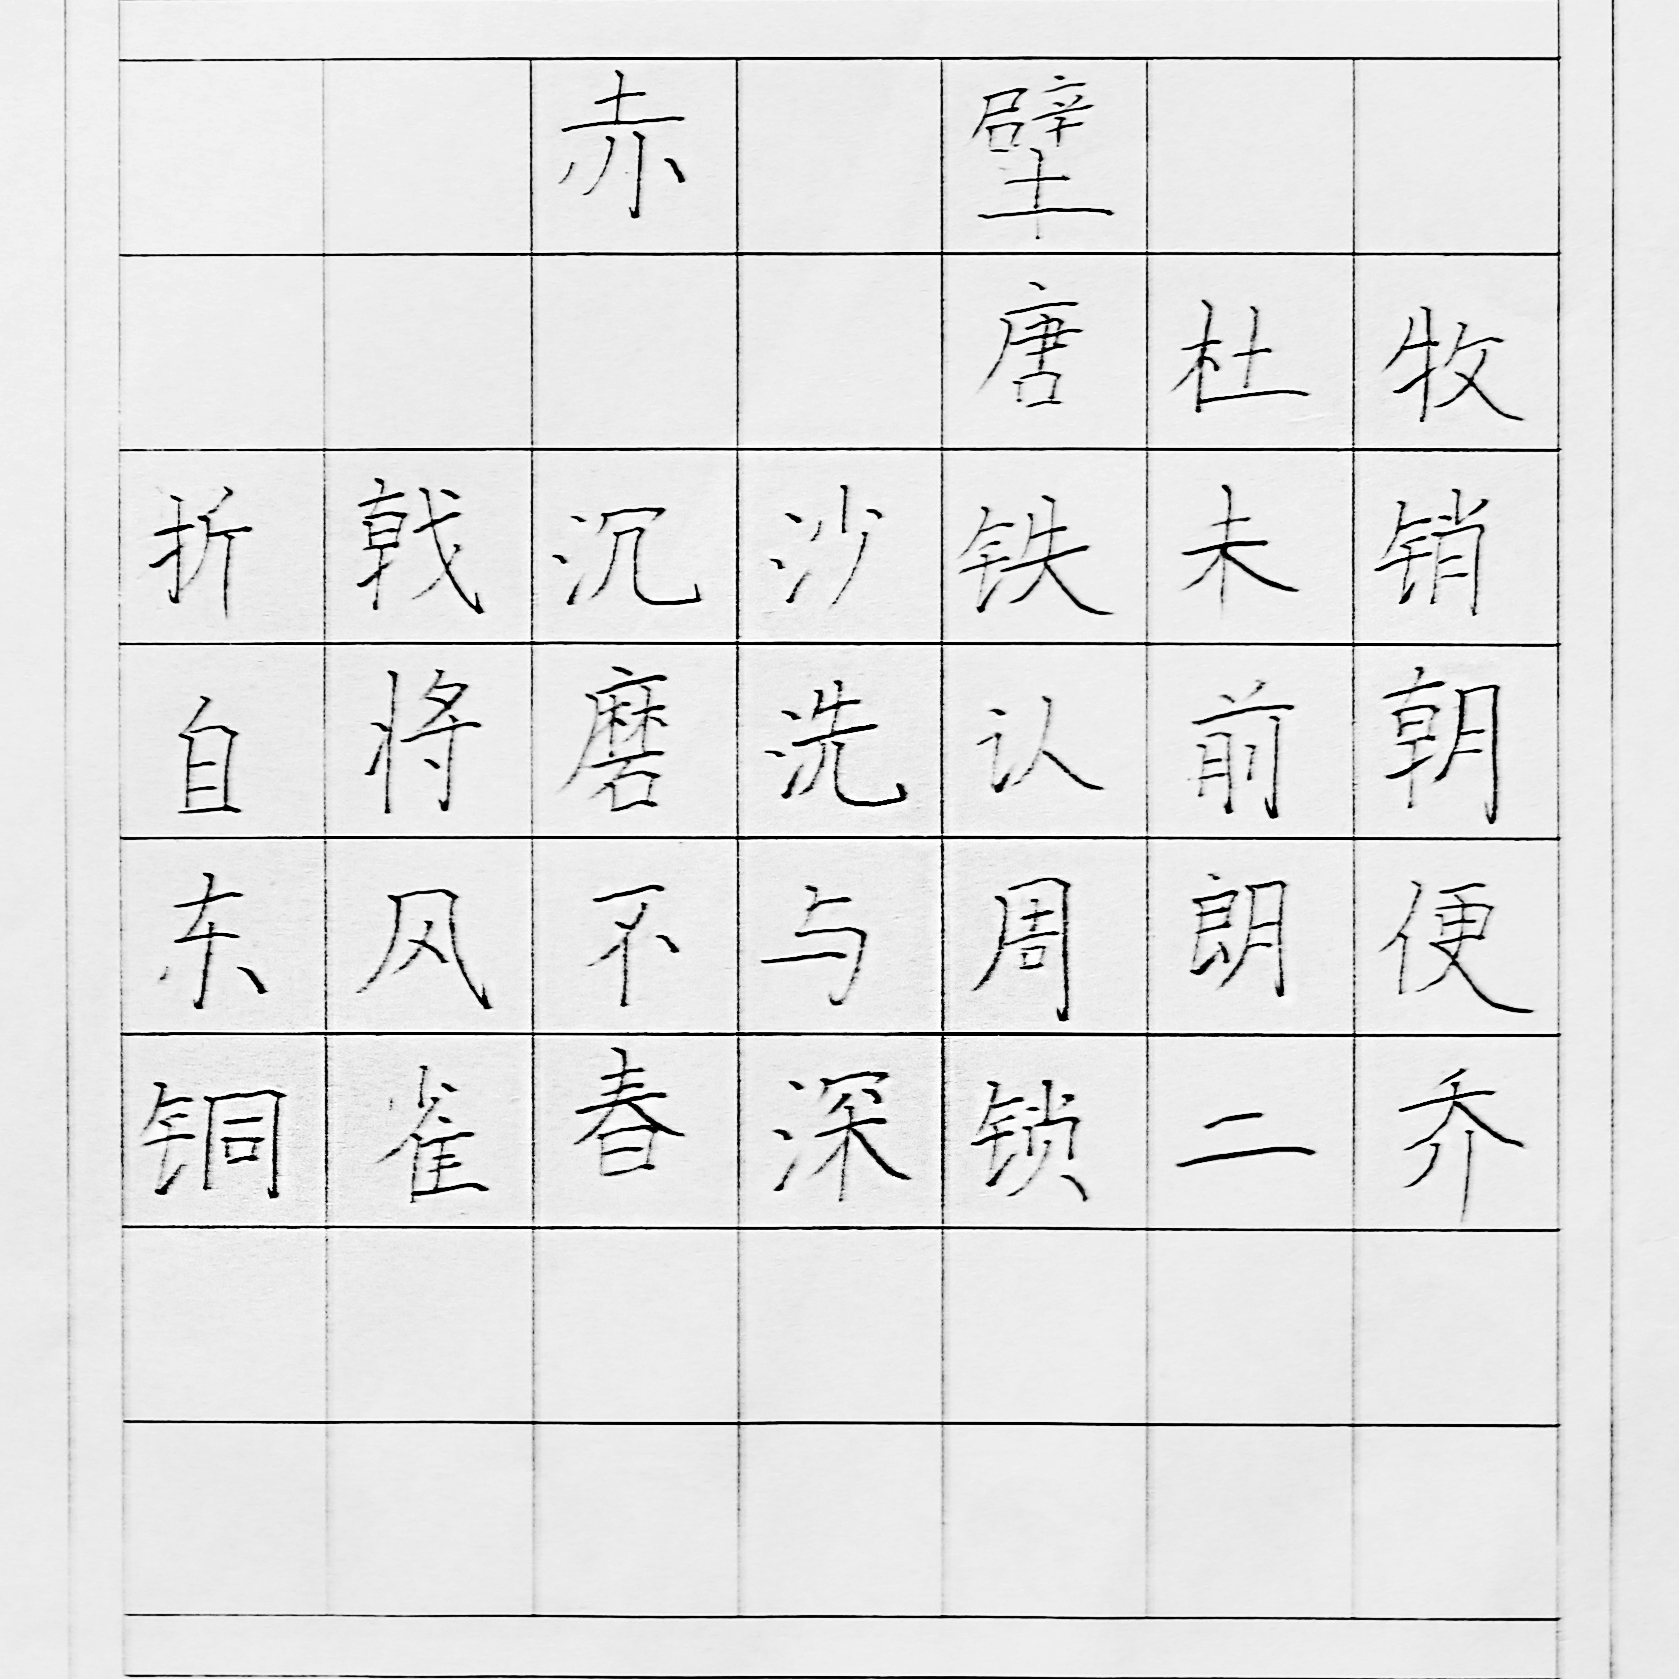 赤壁
唐杜牧
折戟沉沙铁未销
自将磨洗认前朝
东风不与周朗便
铜雀春深锁二乔